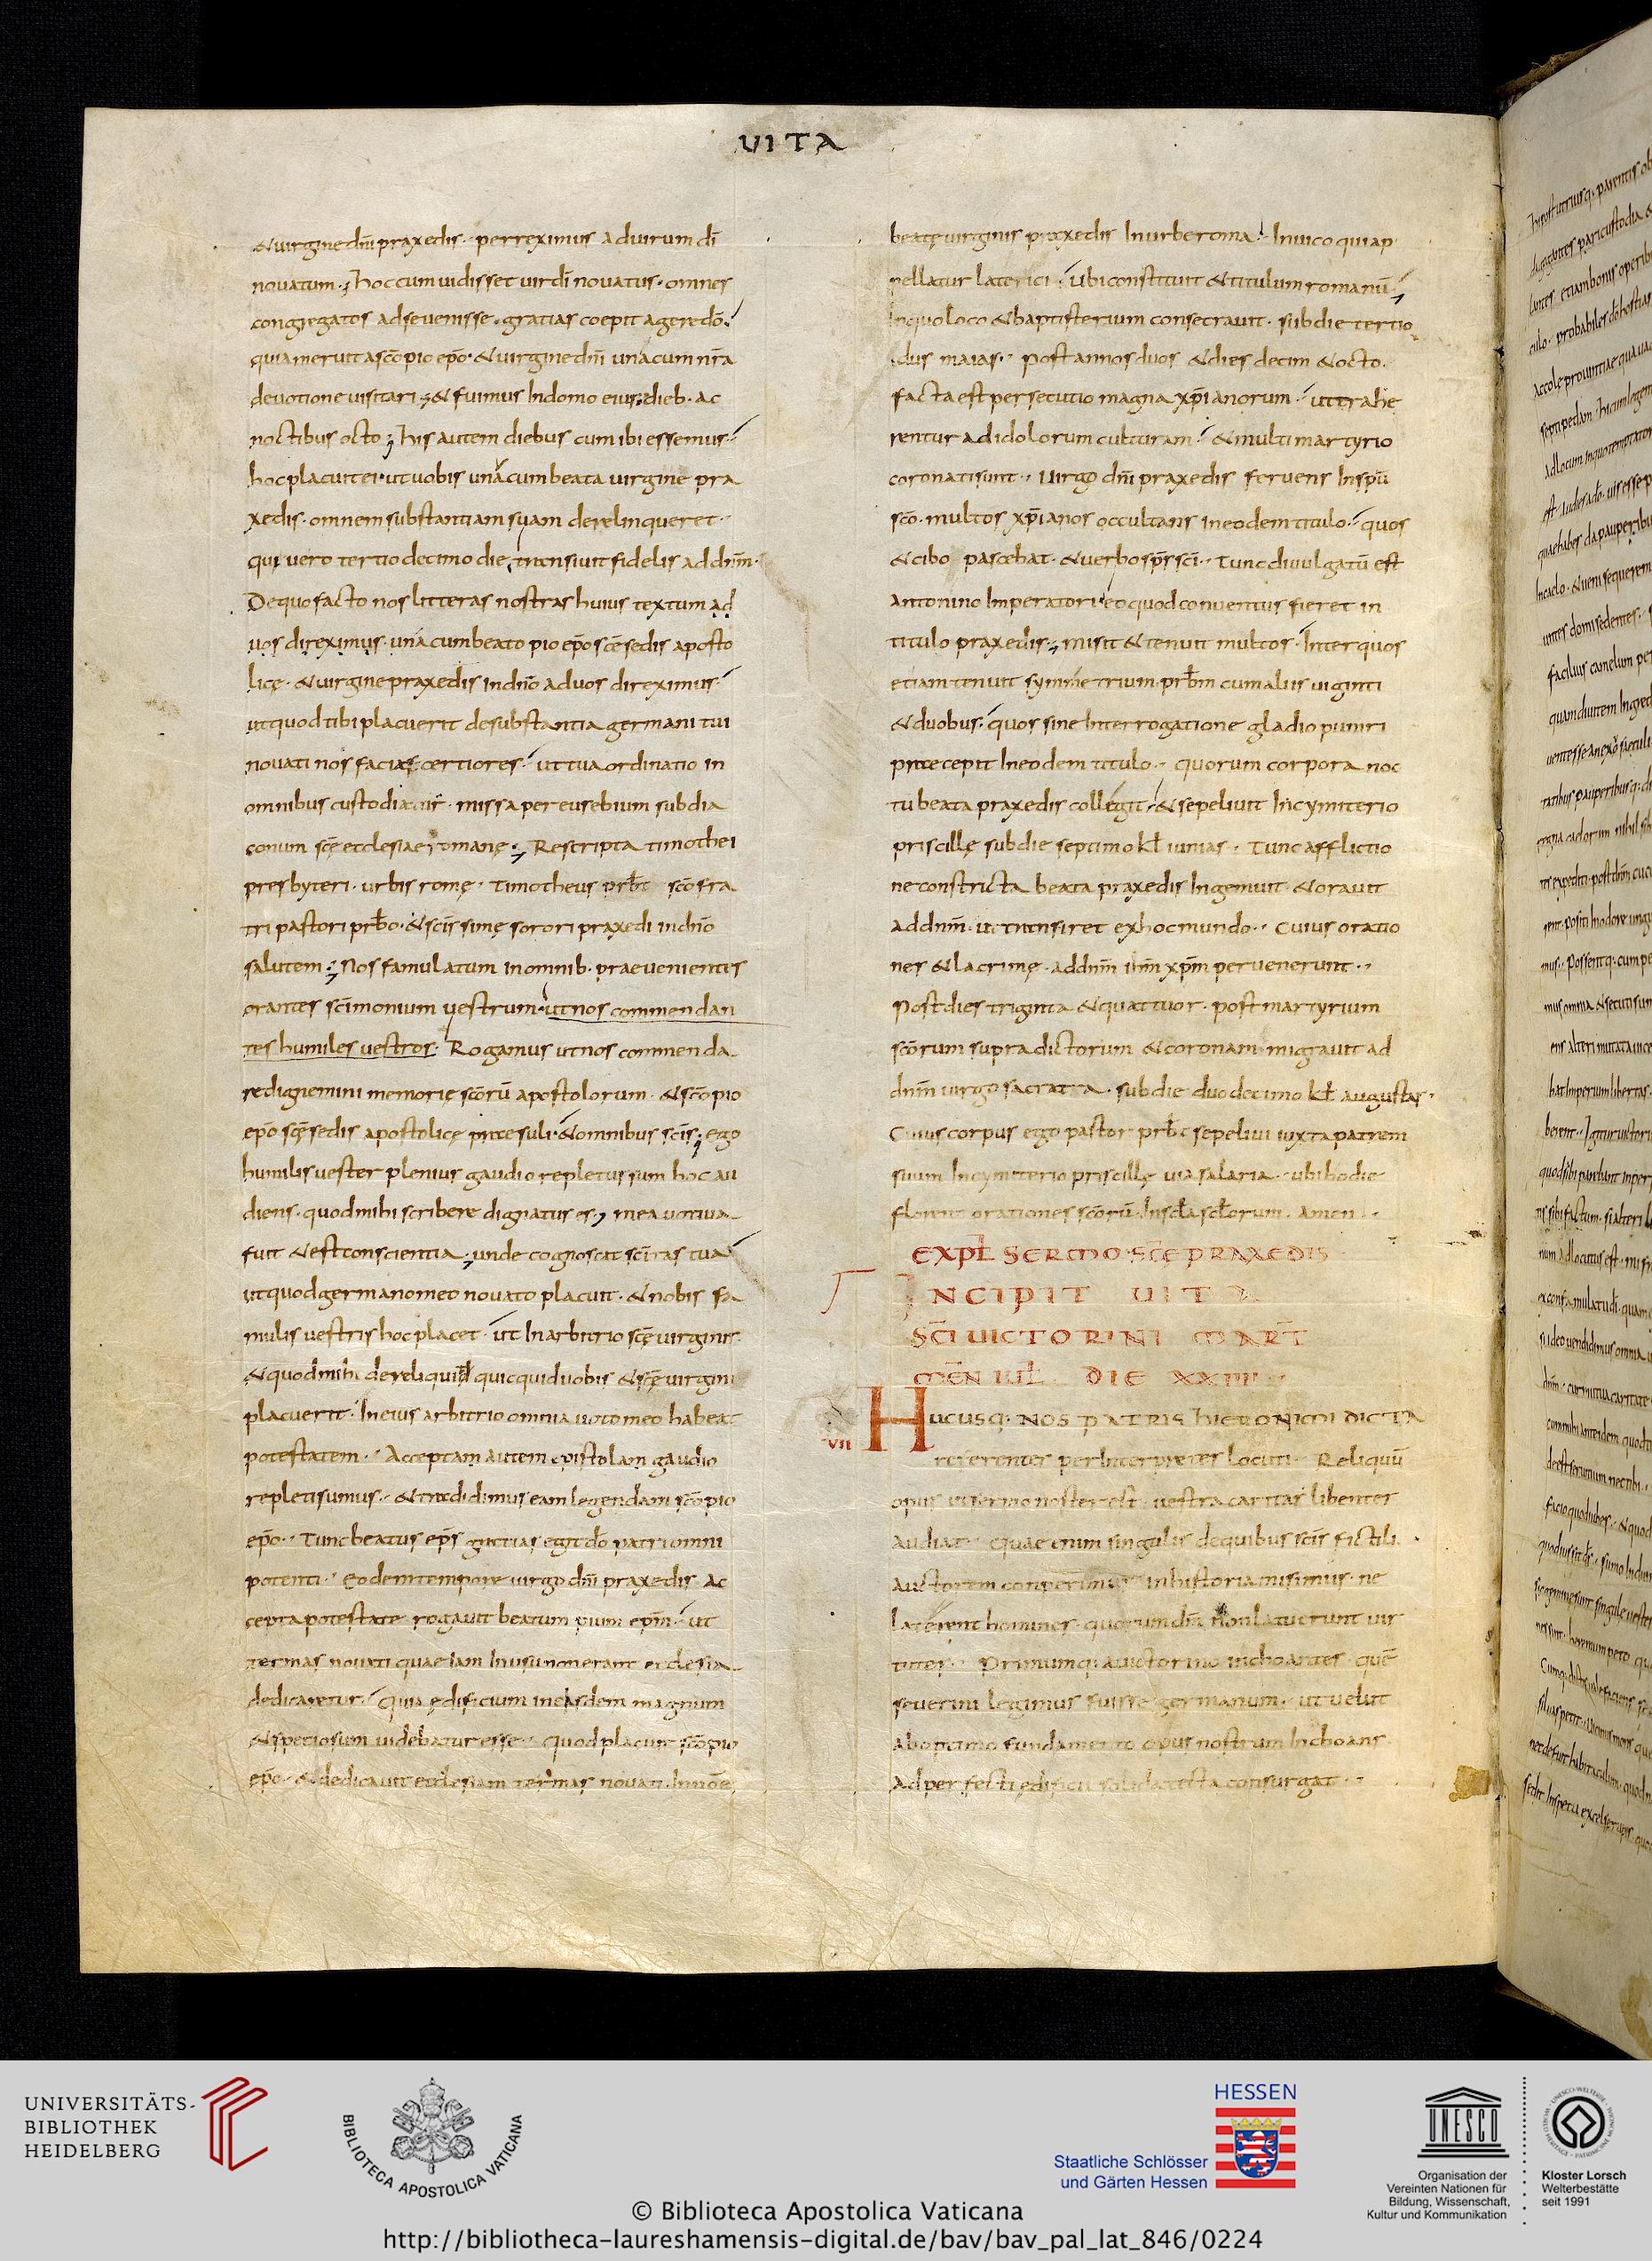 UITA
&uirgine dn̄i praxedis · perreximus aduirum dī
nouatum · hoc cum uidisset uir dī nouatus · omnes
congregatos ad se uenisse · gratias coepit agere dō ·
quia meruit a scō pio ep̄o · & uirgine dn̄i una cum nr̄a
deuotione uisitari ; & fuimus In domo eius · dieb · ac
noctibus octo ; his autem diebus cum ibi essemus ·
hoc placuit ei · ut uobis una cum beata uirgine pra
xedis · omnem substantiam suam derelinqueret ·
qui uero tertio decimo die · transiuit fidelis ad dn̄m ·
De quo facto nos litteras nostras huius textum ad
uos direximus · una cum beato pio ep̄o scē sedis aposto
licę · & uirgine praxedis in dn̄o ad uos direximus ·
ut quod tibi placuerit de substantia germani tui
nouati nos facias certiores · ut tua ordinatio in
omnibus custodiatur · missa per eusebium subdia
conum scę ecclesiae romanę · Rescripta timothei
presbyteri · urbis romę · Timotheus prb̄t scō fra
tri pastori prb̄o · & scīssimę sorori praxedi in dn̄o
salutem ; Nos famulatum in omnib · praeuenientes
orantes scīmonium uestrum · ut nos commendan
tes humiles uestros · Rogamus ut nos commenda
re dignemini memorię scōrū apostolorum · & scō pio
ep̄o scę sedis apostolicę praesuli · & omnibus scīs ; ego
humilis uester plenius gaudio repletus sum hoc au
diens · quod mihi scribere dignatus es ; mea uotiua
fuit & est conscientia ; unde cognoscat scītas tua
ut quod germano meo nouato placuit · & nobis fa
mulis uestris hoc placet · ut In arbitrio scę uirginis
& quod mihi dereliquid quicquid uobis & scę uirgini
placuerit · In eius arbitrio omnia uoto meo habeat
potestatem · Acceptam autem epistolam gaudio
repleti sumus · & tradidimus eam legendam scō pio
ep̄o · Tunc beatus ep̄s gratias egit dō patri omni
potenti · Eodem tempore uirgo dn̄i praxedis ac
cepta potestate rogauit beatum pium ep̄m · ut
termas nouati quae iam In usu non erant ecclesia
dedicaretur · Quia ędificium in easdem magnum
& spetiosum uidebatur esse · Quod placuit scō pio
ep̄o · & dedicauit ecclesiam termas nouati · In nōe
beatę uirginis praxedis In urbe roma · In uico qui ap
pellatur laterici · Ubi constituit & titulum romanū ·
In quo loco & baptisterium consecrauit · sub die tertio
idus maias · Post annos duos & dies decim & octo ·
facta est persecutio magna xp̄ianorum · ut trahe
rentur ad idolorum culturam · & multi martyrio
coronati sunt · Uirgo dn̄i praxedis feruens In sp̄u
scō · multos xp̄ianos occultans in eodem titulo · quos
& cibo pascebat · & uerbo sp̄s scī · Tunc diuulgatū est
Antonino Imperatori eo quod conuentus fieret in
titulo praxedis · misit & tenuit multos · Inter quos
etiam tenuit symmetrium prb̄m cum aliis uiginti
& duobus · quos sine Interrogatione gladio puniri
praecepit In eodem titulo · quorum corpora noc
tu beata praxedis collegit · & sepeliuit In cymiterio
priscillę sub die septimo kl̄ iunias · Tunc afflictio
ne constricta beata praxedis Ingemuit & orauit
ad dn̄m · ut transiret ex hoc mundo · Cuius oratio
nes & lacrimę · ad dn̄m ih̄m xp̄m peruenerunt ·
Post dies triginta & quattuor · post martyrium
scōrum supradictorum & coronam migrauit ad
dn̄m uirgo sacrata · sub die duodecimo kl̄ augustas ·
Cuius corpus ego pastor prb̄t sepeliui iuxta patrem
suum In cymiterio priscillę uia salaria · ubi hodie
florent orationes scōrū · In scl̄a scl̄orum · amen ·
EXPL̄ SERMO SCĒ PRAXEDIS
INCIPIT UITA
SCĪ UICTORINI MART̄
MEN̄ IUL̄ DIE XXIIII
VII
HUCUSQ · NOS PATRIS HIERONIMI DICTA
referenter per Interpretes locuti · Reliquū
opus ut sermo noster est · uestra caritas libenter
audiat · Quae enim singulis de quibus scīs fictili
auctorem conperimus in historia misimus · ne
laterent homines · quorum dn̄m non latuerunt uir
tutes · Primumq · a uictorino inchoantes · quē
seuerini legimus fuisse germanum · ut uelut
ab optimo fundamento opus nostrum Inchoans
ad perfecti ędificii solida tecta consurgat ·
UNIVERSITÄTS-
BIBLIOTHEK
HEIDELBERG
BIBLIOTECA APOSTOLICA VATICANA
HESSEN
Staatliche Schlösser
und Gärten Hessen
UNESCO
Organisation der
Vereinten Nationen für
Bildung, Wissenschaft,
Kultur und Kommunikation
Kloster Lorsch
Welterbestätte
seit 1991
© Biblioteca Apostolica Vaticana
http://bibliotheca-laureshamensis-digital.de/bav/bav_pal_lat_846/0224